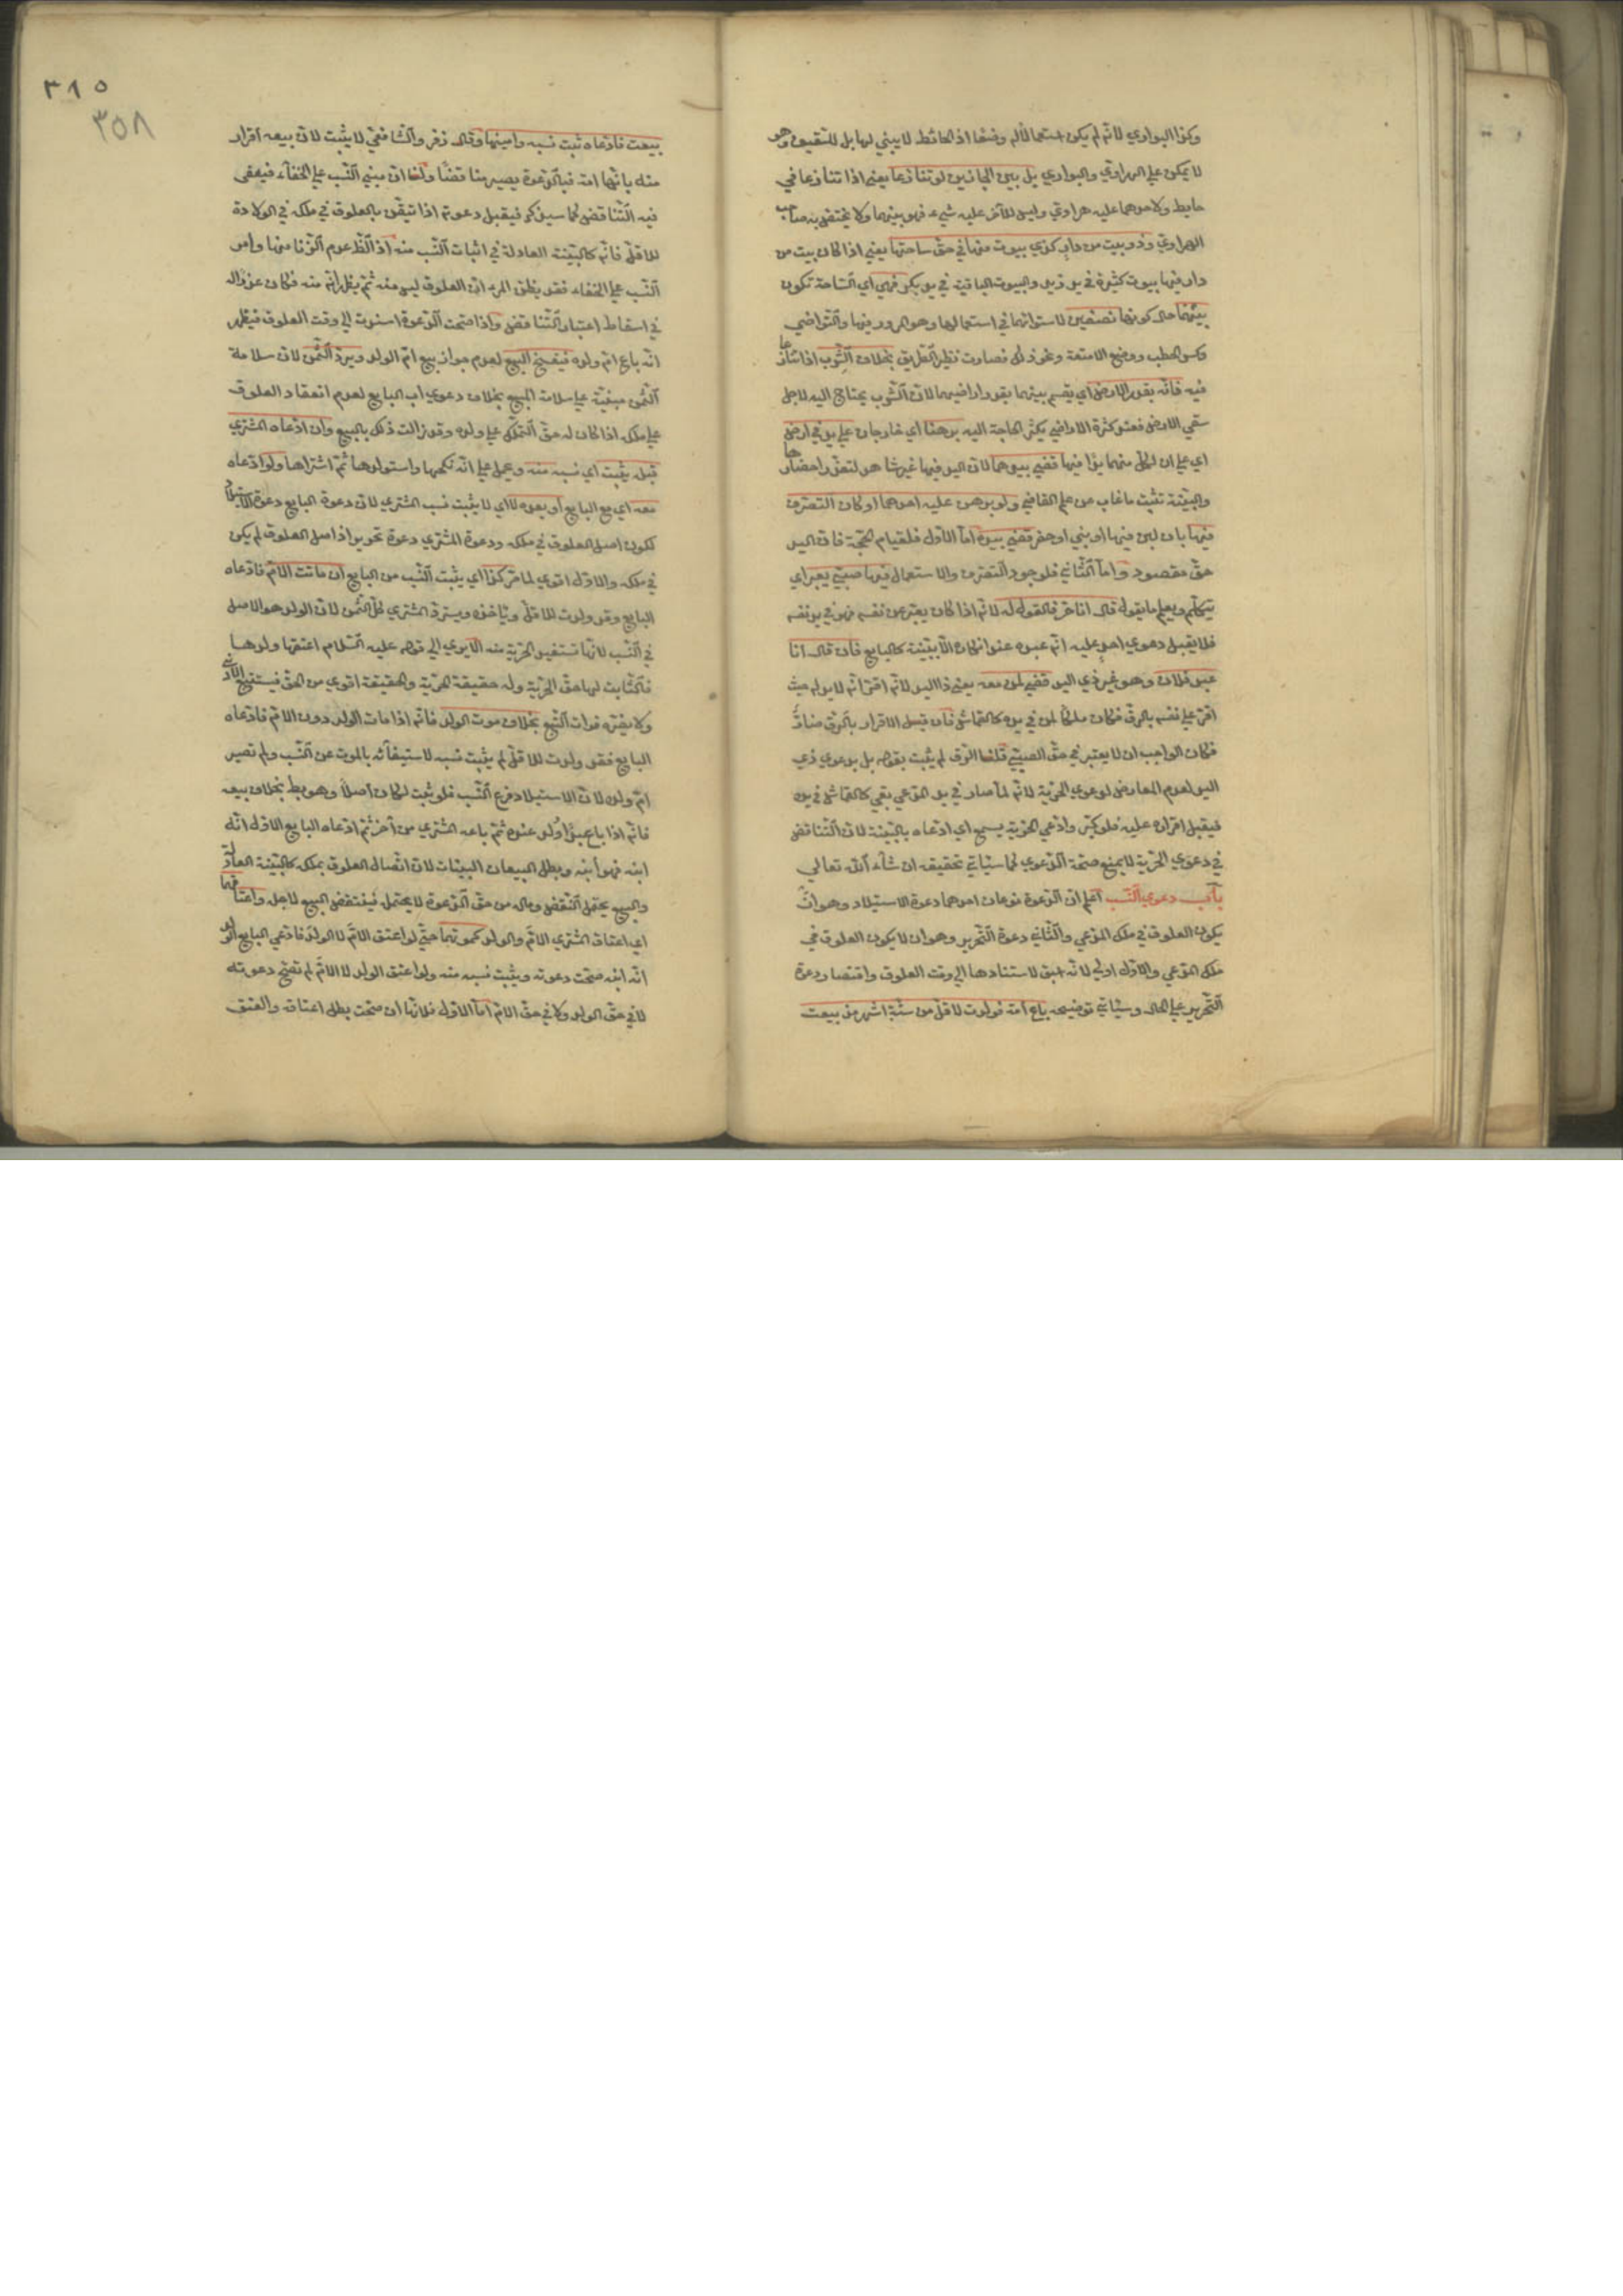 وكذا البواري لانه لم يكن استعمالا له وضعا اذ الحائط لا يبني لها بل للتسقيف وهو
لا يمكن علي الهرادي والبواري بل بين الجارين لو تنازعا يعني اذا تنازعا في
حايط ولاحدهما عليه هرادي وليس للآخر عليه شيء فهو بينهما ولا يختص به صاحب
الهرادي وذو بيت من دار كذي بيوت منها في حق ساحتها يعني اذا كان بيت من
دار فيها بيوت كثيرة في يد زيد والبيوت الباقية في يد بكر فهي اي الساحة تكون
بينهما حال كونها نصفين لاستوائهما في استعمالها وهو المرور فيها والتوضي
وكسر الحطب ووضع الامتعة ونحو ذلك فصارت نظير الطريق بخلاف الشرب اذا تنازعا
فيه فانه بقدر الارض اي يقسم بينهما بقدر اراضيهما لان الشرب يحتاج اليه لاجل
سقي الارض فعند كثرة الاراضي يكثر الحاجة اليه برهنا اي خارجان علي يد في ارض
اي علي ان لكل منهما يدا فيها قضي بيدهما لان اليد فيها غير مشاهد لتعذر احضارها
والبينة تثبت ما غاب من علم القاضي ولو برهن عليه احدهما او كان التصرف
فيها بان لبن فيها او بني او حفر قضي بيده اما الاول فلقيام الحجة فان اليد
حق مقصود واما الثاني فلوجود التصرف والاستعمال فيها صبي يعبر اي
يتكلم ويعلم ما يقول قال انا حر فالقول له لانه اذا كان يعبر عن نفسه فهو في يد نفسه
فلا يقبل دعوي احد عليه انه عبده عند انكاره الا ببينة كالبالغ فان قال انا
عبد فلان وهو غير ذي اليد قضي لمن معه يعني ذا اليد لانه اقر انه لا يد له حيث
اقر علي نفسه بالرق فكان ملكا لمن في يده كالقماش فان قيل الاقرار بالرق ضار
فكان الواجب ان لا يعتبر في حق الصبي قلنا الرق لم يثبت بقوله بل بدعوي ذي
اليد لعدم المعارض لدعوي الحرية لانه لما صار في يد المدعي بقي كالقماش في يده
فيقبل اقراره عليه فلو كبر وادعي الحرية يسمع اي ادعاه بالبينة لان التناقض
في دعوي الحرية لا يمنع صحة الدعوي كما سيأتي تحقيقه ان شاء الله تعالي
باب دعوي النسب اعلم ان الدعوة نوعان احدهما دعوة الاستيلاد وهو ان
يكون العلوق في ملك المدعي والثاني دعوة التحرير وهو ان لا يكون العلوق في
ملك المدعي والاول اولي لانه اسبق لاستنادها الي وقت العلوق واقتصار دعوة
التحرير علي الحال وسيأتي توضيحه باع امة فولدت لاقل من ستة اشهر مذ بيعت
بيعت
٣٨٥
٣٥٨
بيعت فادعاه ثبت نسبه واميتها وقال زفر والشافعي لا يثبت لان بيعه اقرار
منه بانها امة فبالدعوة يصير مناقضا ولنا ان مبني النسب علي الخفاء فيعفي
فيه التناقض كما سيذكر فيقبل دعوته اذا تيقن بالعلوق في ملكه في الولادة
للاقل فانه كالبينة العادلة في اثبات النسب منه اذ الظ عدم الزنا منها وامر
النسب علي الخفاء فقد يظن المرء ان العلوق ليس منه ثم يظهر انه منه فكان عذرا له
في اسقاط اعتبار التناقض واذا صحت الدعوة استندت الي وقت العلوق فيظهر
انه باع ام ولده فيفسخ البيع لعدم جواز بيع ام الولد ويرد الثمن لان سلامة
الثمن مبنية علي سلامة المبيع بخلاف دعوي اب البايع لعدم انعقاد العلوق
علي ملكه اذا كان له حق التملك علي ولده وقد زالت ذلك بالبيع وان ادعاه المشتري
قبله يثبت اي نسبه منه ويحمل علي انه نكحها واستولدها ثم اشتراها ولو ادعاه
معه اي مع البايع او بعده لا اي لا يثبت نسب المشتري لان دعوة البايع دعوة الاستيلاد
لكون اصل العلوق في ملكه ودعوة المشتري دعوة تحرير اذ اصل العلوق لم يكن
في ملكه والاول اقوي لما مر كذا اي يثبت النسب من البايع ان ماتت الام فادعاه
البايع وقد ولدت للاقل ويأخذه ويسترد المشتري كل الثمن لان الولد هو الاصل
في النسب لانها تستفيد الحرية منه الا يري الي قوله عليه السلام اعتقها ولدها
فالثابت لها حق الحرية وله حقيقة الحرية والحقيقة اقوي من الحق فيستتبع الادني
ولا يضره فوات التبع بخلاف موت الولد فانه اذا مات الولد دون الام فادعاه
البايع فقد ولدت للاقل لم يثبت نسبه لاستغنائه بالموت عن النسب ولم تصير
ام ولده لان الاستيلاد فرع النسب فلو ثبت لكان اصلا وهو بط بخلاف بيعه
فانه اذا باع عبدا ولد عنده ثم باعه المشتري من آخر ثم ادعاه البايع الاول انه
ابنه فهو ابنه وبطل البيعان لان اتصال العلوق بملكه كالبينة العادلة
والبيع يحتمل النقض وماله من حق الدعوة لا يحتمل فينتقض البيع لاجله واعتاقهما
اي اعتاق المشتري الام والولد كموتهما حتي لو اعتق الام لا الولد فادعي البايع الولد
انه ابنه صحت دعوته ويثبت نسبه منه ولو اعتق الولد لا الام لم تصح دعوته
لا في حق الولد ولا في حق الام اما الاول فلانها ان صحت بطل اعتاقه والعتق